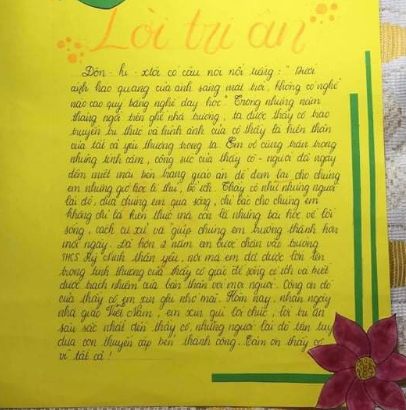 Lời tri ân
Đôn - ki - xtôi có câu nói nổi tiếng: "Dưới
ánh hào quang của ánh sáng mặt trời, không có nghề
nào cao quý bằng nghề dạy học". Trong những năm
tháng ngồi trên ghế nhà trường, ta được thầy cô trao
truyền tri thức và hình ảnh của cô thầy là hiện thân
của tất cả yêu thương trong ta. Em vô cùng trân trọng
những tình cảm, công sức của thầy cô - người đã ngày
đêm miệt mài bên trang giáo án để đem lại cho chúng
em những giờ học lí thú, bổ ích. Thầy cô như những người
lái đò, đưa chúng em qua sông, chỉ bảo cho chúng em
không chỉ là kiến thức mà còn là những bài học về lối
sống, cách cư xử và giúp chúng em trưởng thành hơn
mỗi ngày. Đã hơn 2 năm em bước chân vào trường
THCS Kỳ Ninh thân yêu, nơi mà em đã được lớn lên
trong tình thương của thầy cô giáo để sống có ích và biết
được trách nhiệm của bản thân với mọi người. Công ơn đó
của thầy cô em xin ghi nhớ mãi. Hôm nay, nhân ngày
nhà giáo Việt Nam, em xin gửi lời chúc, lời tri ân
sâu sắc nhất đến thầy cô, những người lái đò tận tuỵ
đưa con thuyền cập bến thành công. Cảm ơn thầy cô
vì tất cả!